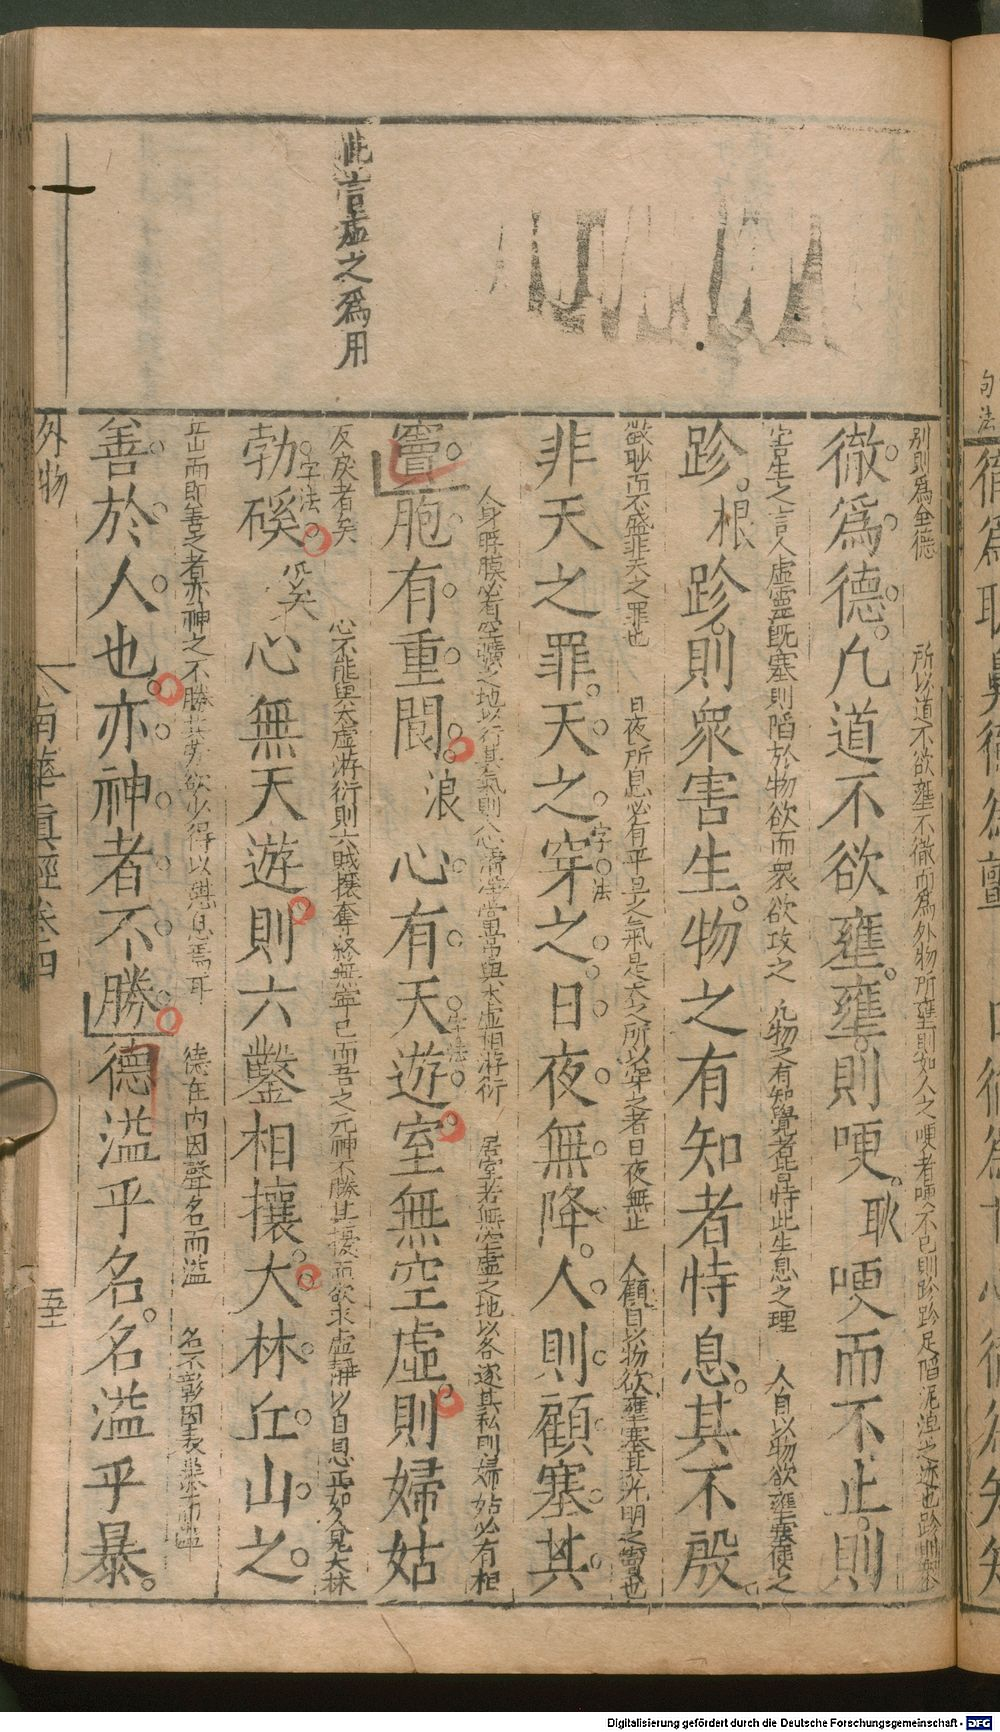 此言虛之爲用
别則爲全德　所以道不欲壅不徹而爲外物所壅則如人之哽者哽不已則跈跈足陷泥淖之迹也跈則
徹爲德凡道不欲壅壅則哽耿哽而不止則
害生之言人虛靈旣塞則陷於物欲而衆欲攻之　凡物之有知覺者皆恃此生息之理　人自以物欲壅塞使之
跈根跈則衆害生物之有知者恃息其不殷
而不盛非天之罪也　日夜所息必有平旦之氣是天之所以穿之者日夜無止　人顧自以物欲壅塞其光明之竇也
非天之罪天之穿之日夜無降人則顧塞其
字法
人身脬膜必有空曠之地以行其氣則心清當與太虛相游衍　居室若無空虛之地以各逐其私則婦姑必有相
竇胞有重閬浪心有天遊室無空虛則婦姑
字法
反戾者矣　心不能與太虛游衍則六賊攘奪終無寧已而吾之元神不勝其擾而欲求虛靜以自息正如久見大林
勃磎兮矣心無天遊則六鑿相攘大林丘山之
字法
丘山而即善之者亦神之不勝其勞欲少得以憇息焉耳　德在内因聲名而溢　名不彰因表暴而
善於人也亦神者不勝德溢乎名名溢乎暴
外物
南華眞經卷四
五十
句法
Digitalisierung gefördert durch die Deutsche Forschungsgemeinschaft - DFG